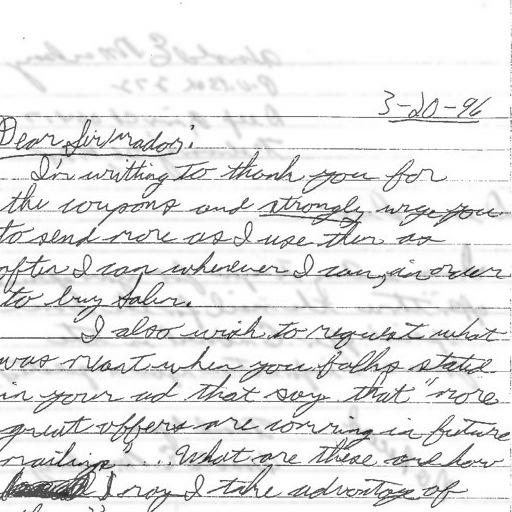 3-20-96
Dear Sir/madam:
I'm writting to thank you for
the coupons and strongly urge you
to send more as I use them as
often I can whenever I can, in order
to buy Salem.
I also wish to request what
was meant when you folks stated
in your ad that say that "more
great offers are comming in future
mailings".... What are these and how
may I take advantage of